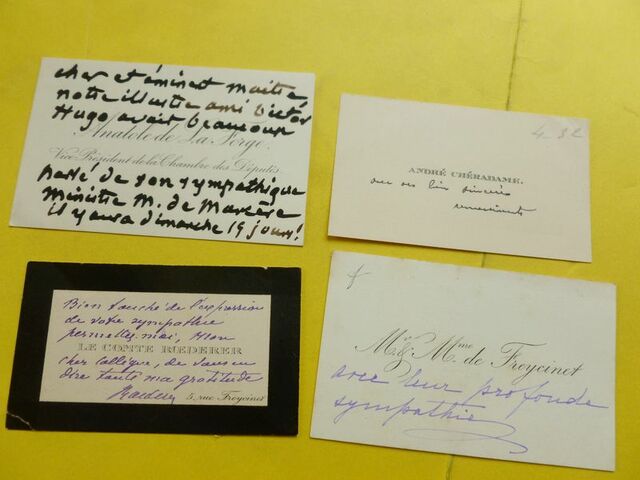 cher et éminent maître
notre illustre ami Victor
Hugo, avait beaucoup
Anatole de La Forge.
Vice-Président de la Chambre des Députés
parlé de son sympathique
Ministre M. de Marcère
il y aura dimanche 19 jours!
4-32
ANDRÉ CHÉRADAME.
avec ses bien sincères
remerciements
Bien touché de l'expression
de votre sympathie
permettez-moi, mon
LE COMTE RŒDERER
cher collègue, de vous en
dire toute ma gratitude
Rœderer
5, rue Freycinet
Mr & Mme de Freycinet
avec leur profonde
sympathie